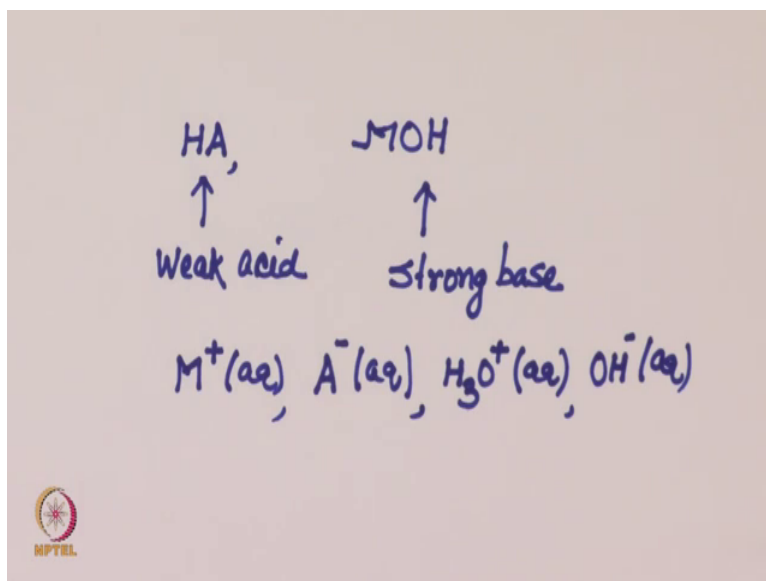 HA, MOH
↑ ↑
Weak acid strong base
M⁺(aq), A⁻(aq), H₃O⁺(aq), OH⁻(aq)
NPTEL